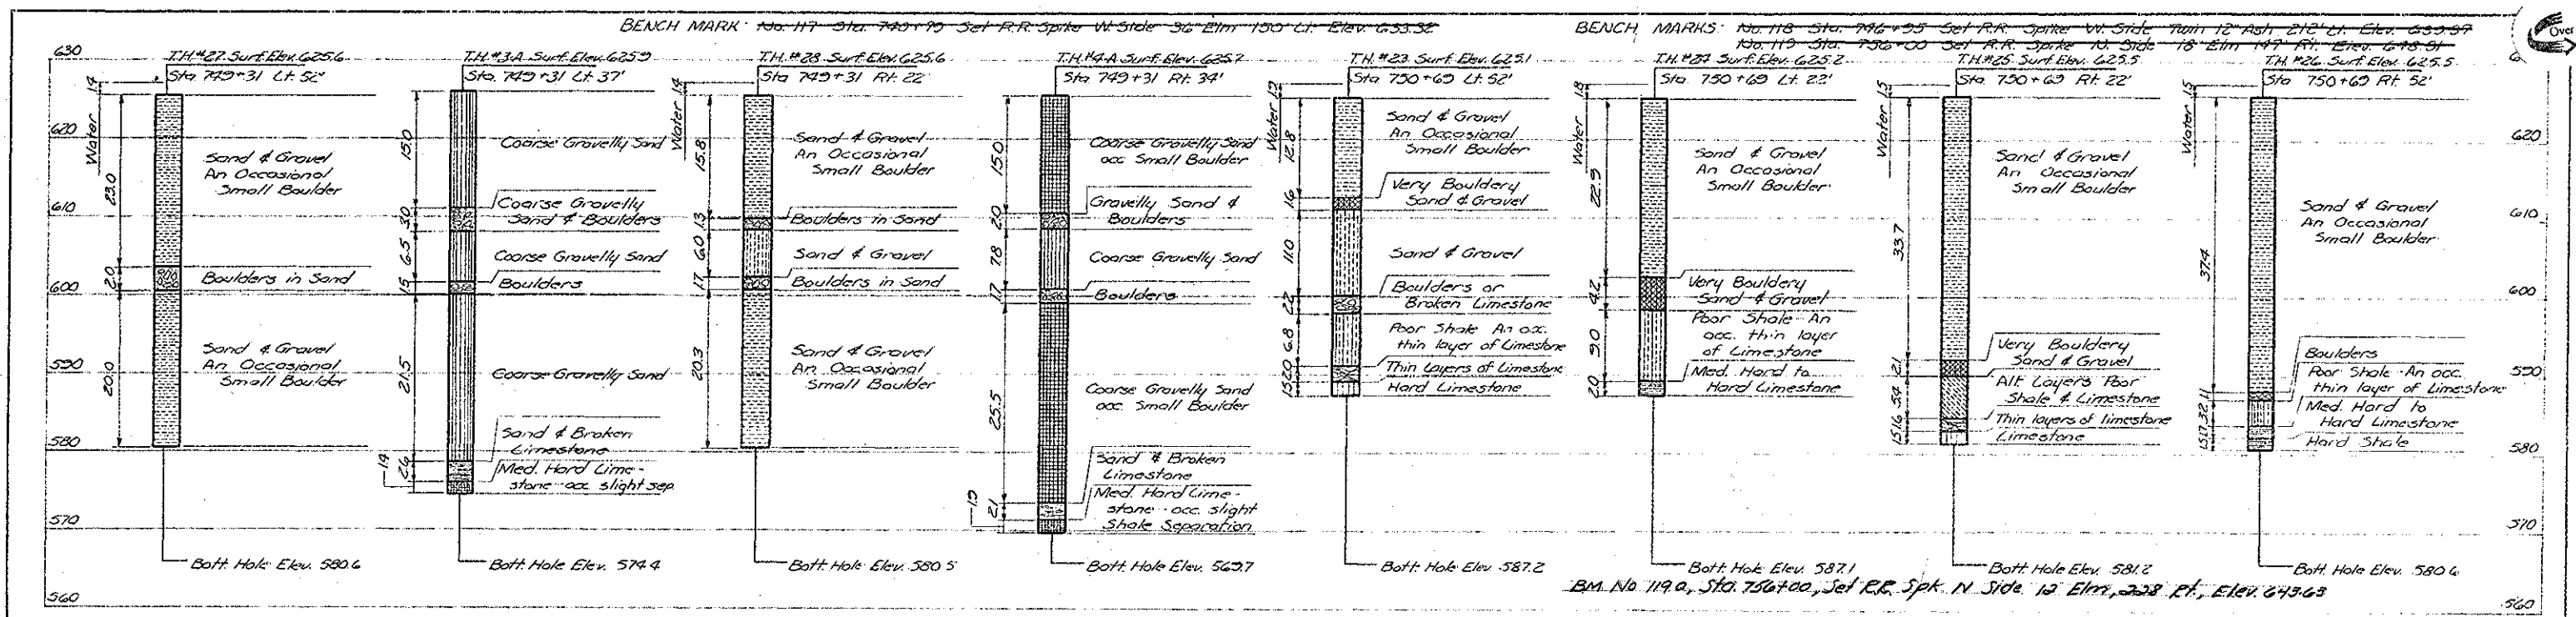 BENCH MARK: No. 117 Sta. 749+79 Set R.R. Spike W. Side 36" Elm 150' Lt. Elev. 633.32
BENCH MARKS: No. 118 Sta. 746+95 Set R.R. Spike W. Side Twin 12" Ash 212' Lt. Elev.
No. 119 Sta. 756+00 Set R.R. Spike N. Side 18" Elm 147' Rt. Elev.
Over
630
620
610
600
590
580
570
560
T.H. #27 Surf. Elev. 625.6
Sta 749+31 Lt. 52'
Water 1.4
23.0
2.0
20.0
Sand & Gravel
An Occasional
Small Boulder
Boulders in Sand
Sand & Gravel
An Occasional
Small Boulder
Bott. Hole Elev. 580.6
T.H. #3-A Surf. Elev. 625.9
Sta. 749+31 Lt. 37'
15.0
3.0
6.5
1.5
21.5
2.6
1.4
Coarse Gravelly Sand
Coarse Gravelly
Sand & Boulders
Coarse Gravelly Sand
Boulders
Coarse Gravelly Sand
Sand & Broken
Limestone
Med. Hard Lime-
stone-occ. slight sep.
Bott. Hole Elev. 574.4
T.H. #28 Surf. Elev. 625.6
Sta 749+31 Rt. 22'
Water 1.4
15.8
1.3
6.0
1.7
20.3
Sand & Gravel
An Occasional
Small Boulder
Boulders in Sand
Sand & Gravel
Boulders in Sand
Sand & Gravel
An Occasional
Small Boulder
Bott. Hole Elev. 580.5
T.H. #4-A Surf. Elev. 625.7
Sta. 749+31 Rt. 34'
15.0
2.0
7.8
1.7
25.5
2.1
1.9
Coarse Gravelly Sand
occ. Small Boulder
Gravelly Sand &
Boulders
Coarse Gravelly Sand
Boulders
Coarse Gravelly Sand
occ. Small Boulder
Sand & Broken
Limestone
Med. Hard Lime-
stone-occ. slight
Shale Separation
Bott. Hole Elev. 569.7
T.H. #23 Surf. Elev. 625.1
Sta. 750+69 Lt. 52'
Water 1.9
12.8
1.6
11.0
2.2
6.8
2.0
1.5
Sand & Gravel
An Occasional
Small Boulder
Very Bouldery
Sand & Gravel
Sand & Gravel
Boulders or
Broken Limestone
Poor Shale An occ.
thin layer of Limestone
Thin Layers of Limestone
Hard Limestone
Bott. Hole Elev. 587.2
T.H. #24 Surf. Elev. 625.2
Sta. 750+69 Lt. 22'
Water 1.8
22.9
4.2
9.0
2.0
Sand & Gravel
An Occasional
Small Boulder
Very Bouldery
Sand & Gravel
Poor Shale-An
occ. thin layer
of Limestone
Med. Hard to
Hard Limestone
Bott. Hole Elev. 587.1
T.H. #25 Surf. Elev. 625.5
Sta. 750+69 Rt. 22'
Water 1.5
33.7
2.1
5.4
1.6
1.5
Sand & Gravel
An Occasional
Small Boulder
Very Bouldery
Sand & Gravel
Alt. Layers Poor
Shale & Limestone
Thin layers of limestone
Limestone
Bott. Hole Elev. 581.2
T.H. #26 Surf. Elev. 625.5
Sta 750+69 Rt. 52'
Water 1.5
37.4
1.1
3.2
1.7
1.5
Sand & Gravel
An Occasional
Small Boulder
Boulders
Poor Shale-An occ.
thin layer of Limestone
Med. Hard to
Hard Limestone
Hard Shale
Bott. Hole Elev. 580.6
620
610
600
590
580
570
560
BM No 119a, Sta. 756+00, Set R.R. Spk. N. Side 12" Elm, 228' Rt., Elev. 643.63